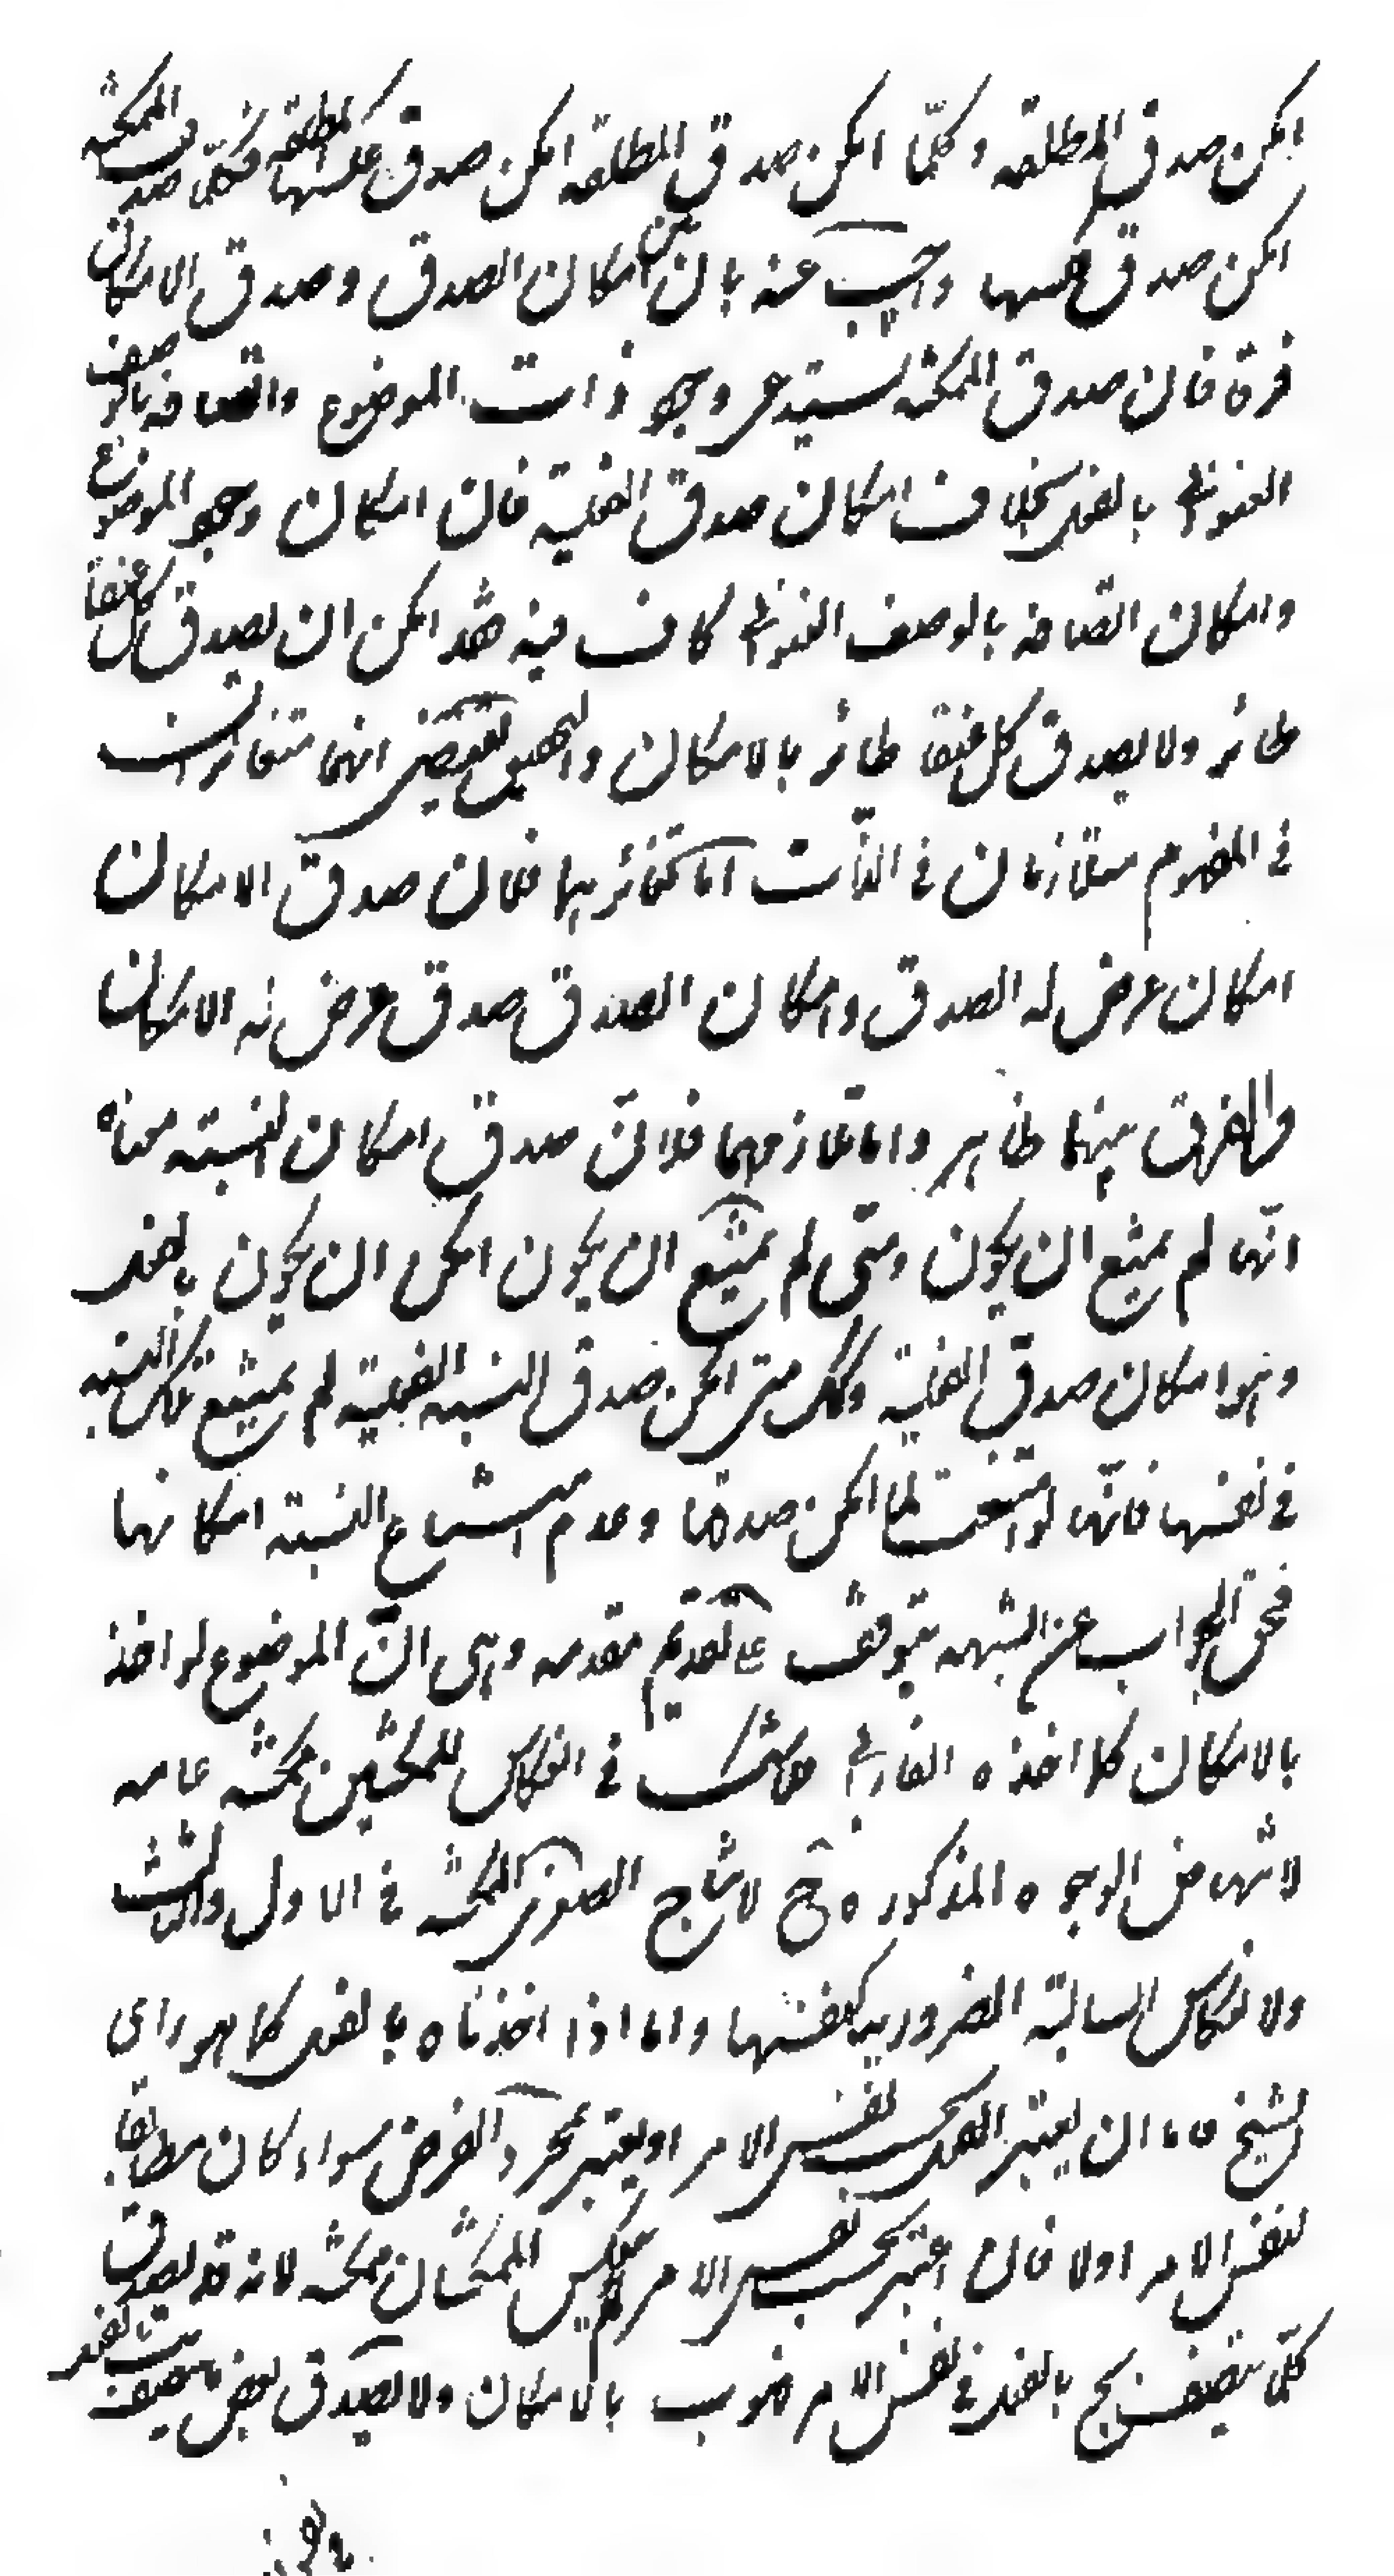 امكن صدق المطلقة وكلّما امكن صدق المطلقة امكن صدق عكسها فكلّما صدقت الممكنة
امكن صدق عكسها واجيب عنه بان بين امكان الصدق وصدق الامكان
فرقا فان صدق الممكنة يستدعى وجود ذات الموضوع واتصافه بالوصف
العنوانى بالفعل بخلاف امكان صدق الفعلية فان امكان وجود الموضوع
وامكان اتصافه بالوصف العنوانى كاف فيه فقد امكن ان يصدق كل عنقاء
طائر ولا يصدق كل عنقاء طائر بالامكان والتحقيق يقتضى انهما متغايران
فى المفهوم متلازمان فى الذات اما تغايرهما فلان صدق الامكان
امكان عرض له الصدق وامكان الصدق صدق عرض له الامكان
والفرق بينهما ظاهر واما تلازمهما فلانّ صدق امكان النسبة معناه
انّها لم يمتنع ان يكون ومتى لم يمتنع ان يكون امكن ان يكون بالفعل
وهو امكان صدق الفعلية وكذلك متى امكن صدق النسبة الفعلية لم يمتنع تلك النسبة
فى نفسها فانّها لو امتنعت لما امكن صدقها وعدم امتناع النسبة امكانها
فحق الجواب عن الشبهة يتوقف على تقديم مقدمة وهى انّ الموضوع لو اخذ
بالامكان كما اخذه الفارابى فلا شك فى انعكاس الممكنتين ممكنة عامة
لانتهاض الوجوه المذكورة ح لانتاج الصغرى الممكنة فى الاول والثالث
ولانعكاس السالبة الضرورية كنفسها واما اذا اخذناه بالفعل كما هو راى
الشيخ فاما ان يعتبر الفعل بحسب نفس الامر او يعتبر بمجرد الفرض سواء كان مطابقا
لنفس الامر اولا فان اعتبر بحسب نفس الامر لم ينعكس الممكنتان ممكنة لانه قد يصدق
كل متصف بج بالفعل فى نفس الامر فهو ب بالامكان ولا يصدق بعض ما يتصف بب بالفعل